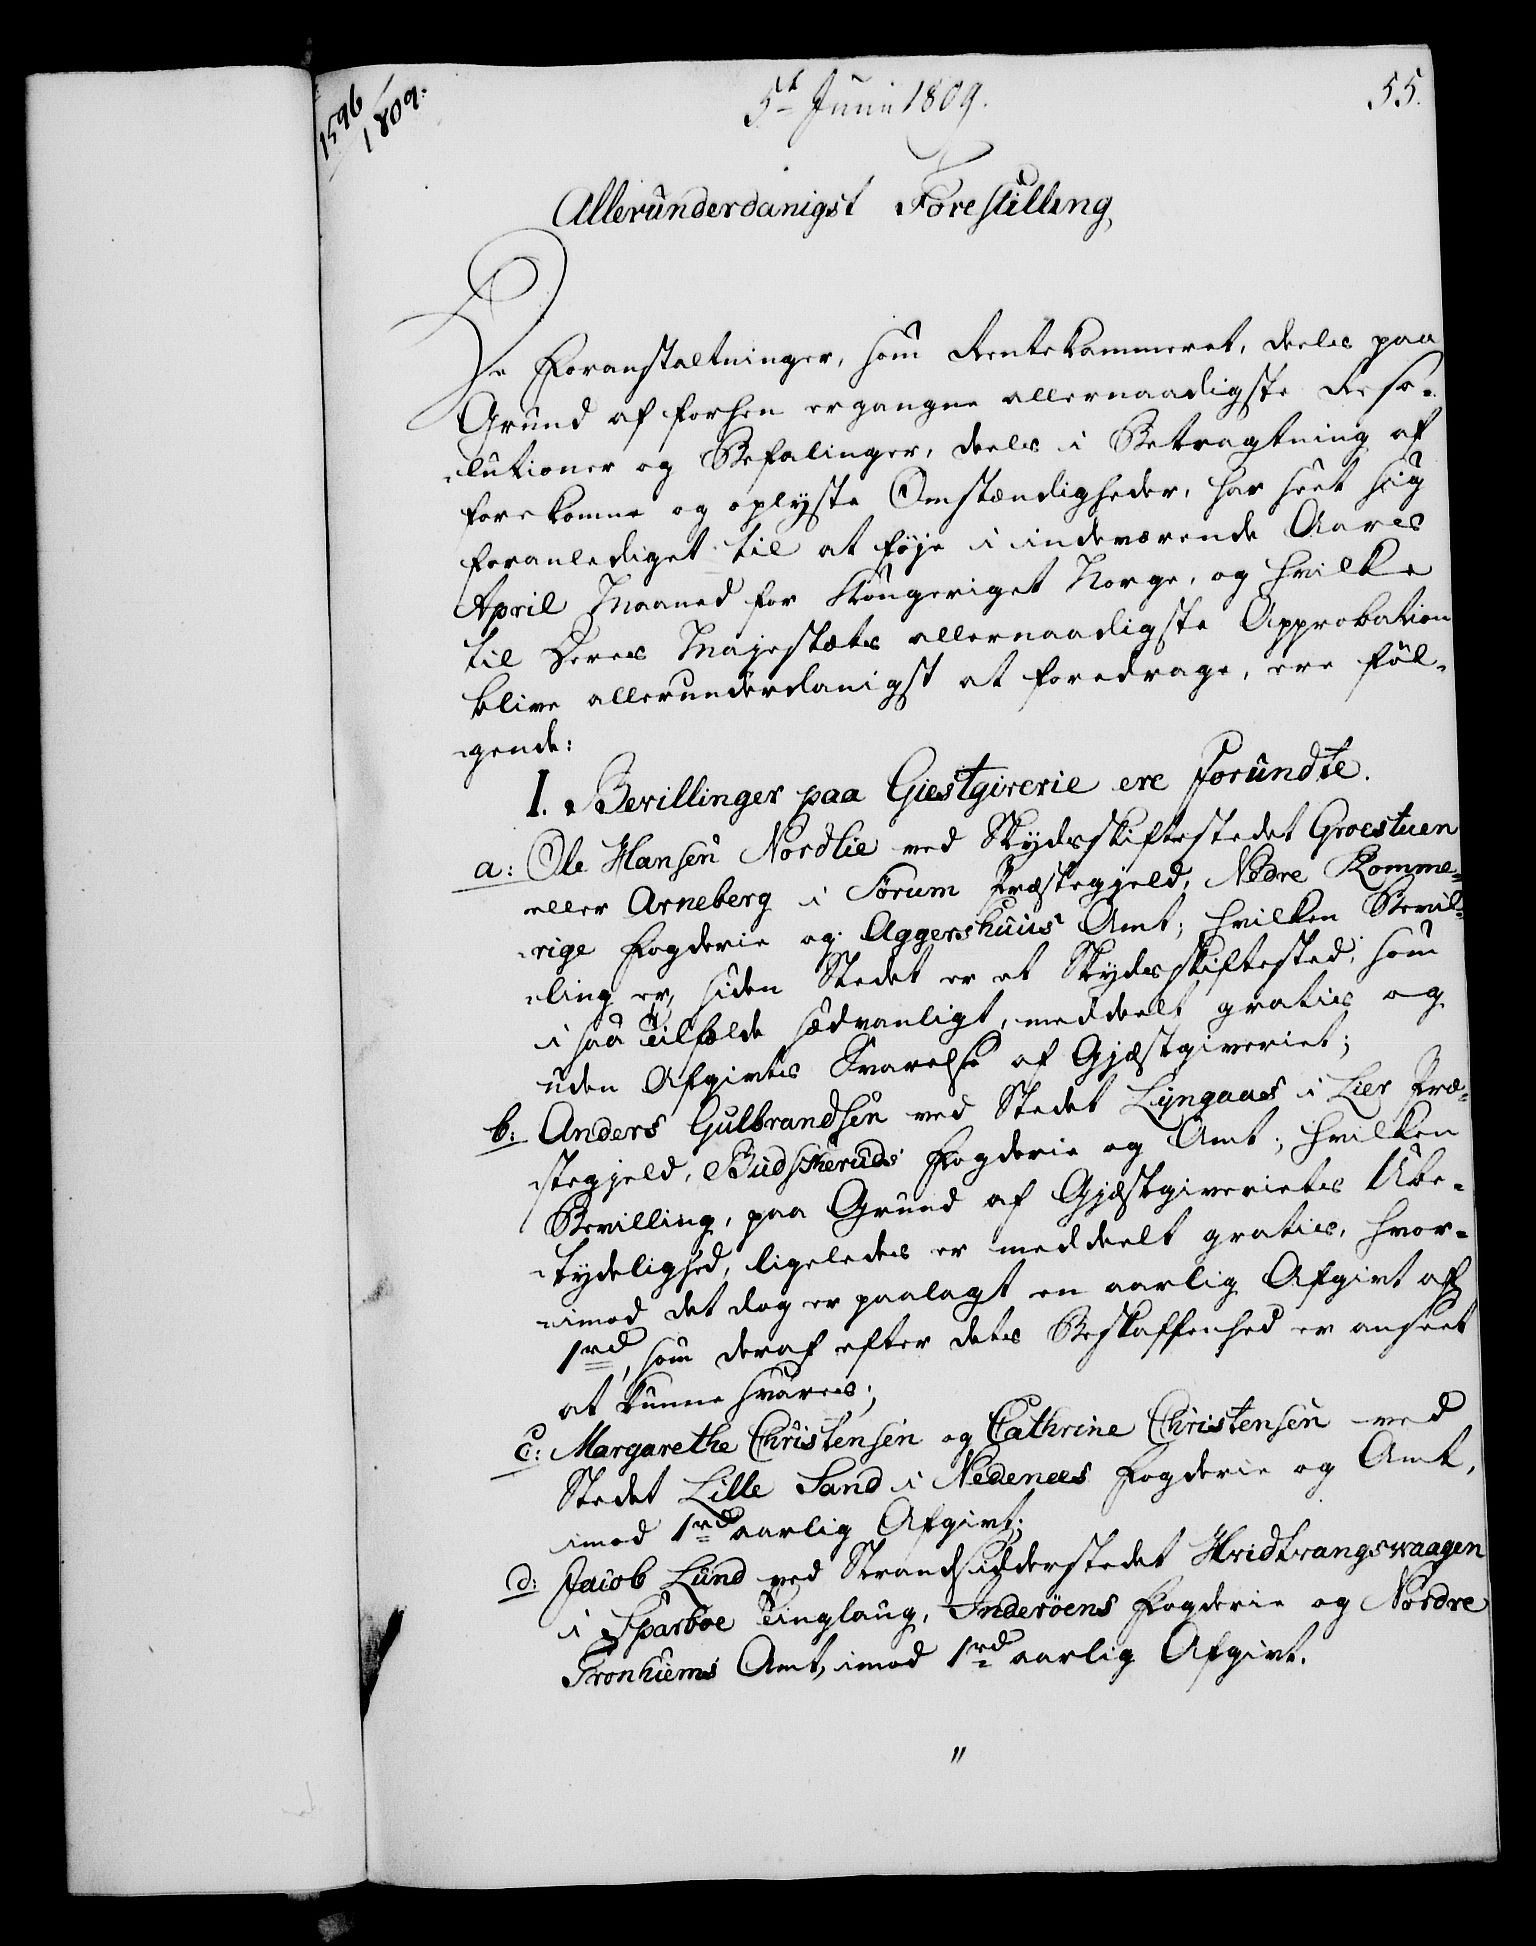 1596
1809.
5t Junii 1809.
55.
Allerunderdanigst Forestilling
De Foranstaltninger, som Rentekammeret, deels paa
Grund af forhen ergangne allernaadigste Reso-
lutioner og Befalinger, deels i Betragtning af
forekomne og oplyste Omstændigheder, har seet sig
foranlediget til at föje i indeværende Aars
April Maaned for Kongeriget Norge, og hvilke
til Deres Majestæts allernaadigste Approbation
blive allerunderdanigst at foredrage, ere föl-
gende:
I. Bevillinger paa Giestgiverie ere forundte.
a: Ole Hansen Nordlie ved Skydsskiftestedet Groestuen
eller Arneberg i Sörum Præstegjeld, Nedre Romme-
rige Fogderie og Aggershuus Amt; hvilken Bevil-
ling er, siden Stedet er et Skydsskiftested, som
i saa Tilfælde sædvanligt, meddeelt gratis og
uden Afgivts Svarelse af Gjæstgiveriet;
b: Anders Gulbrandsen ved Stedet Lyngaas i Lier Præ-
stegjeld, Budskeruds Fogderie og Amt; hvilken
Bevilling, paa Grund af Gjæstgiveriets Ube-
tydelighed, ligeledes er meddeelt gratis, hvor-
imod det dog er paalagt en aarlig Afgivt af
1rd, som deraf efter dets Beskaffenhed er anseet
at kunne svares;
c: Margarethe Christensen og Cathrine Christensen ved
Stedet Lille Sand i Nedenees Fogderie og Amt,
imod 1rd aarlig Afgivt;
d: Jacob Lund ved Strandsidderstedet Hridtrangsvaagen
i Sparboe Tinglaug, Inderöens Fogderie og Nordre
Tronhiems Amt, imod 1rd aarlig Afgivt.
"